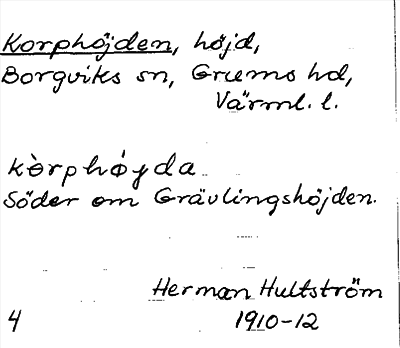 Korphöjden, höjd,
Borgviks sn, Grums hd,
Värml. l.
kòrphǿyda
Söder om Grävlingshöjden.
Herman Hultström
4 1910-12